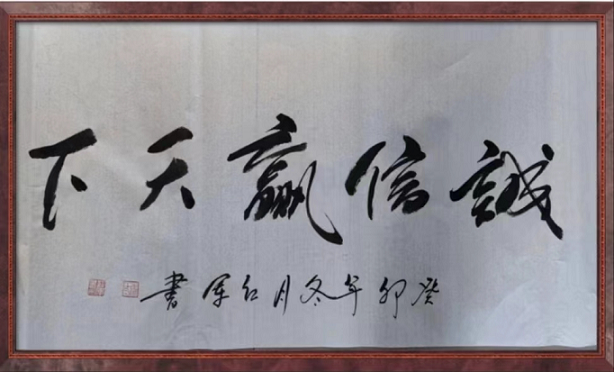 誠信贏天下
癸卯年冬月红军書